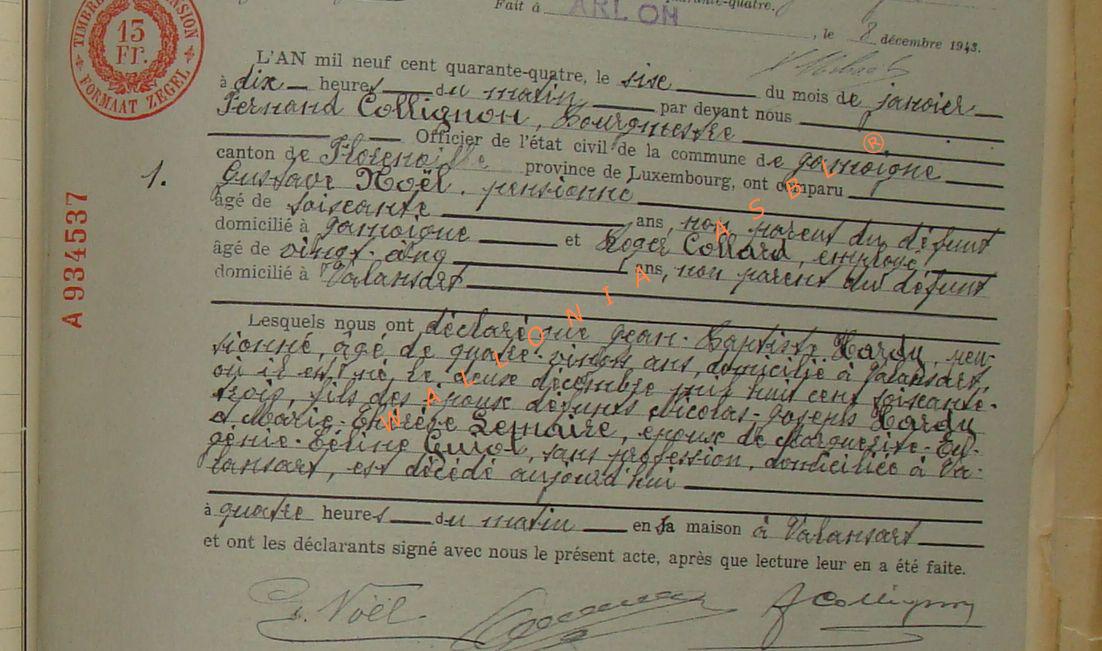 quarante-quatre.
Fait à ARLON, le 8 décembre 1943.
TIMBRE
15
Fr.
FORMAAT ZEGEL
L'AN mil neuf cent quarante-quatre, le sixe du mois de janvier
à dix heures du matin, par devant nous
Fernand Collignon, Bourgmestre
Officier de l'état civil de la commune de Jamoigne
canton de Florenville province de Luxembourg, ont comparu
1. Gustave Noël, pensionné
âgé de soixante ans, non parent du défunt
domicilié à Jamoigne et Roger Collard, employé
âgé de vingt-cinq ans, non parent du défunt
domicilié à Valansart
A 934537
Lesquels nous ont déclaré que Jean-Baptiste Hardy, pen-
sionné, âgé de quatre-vingts ans, domicilié à Valansart,
où il est né, le deux décembre mil huit cent soixante-
trois, fils des époux défunts Nicolas-Joseph Hardy
et Marie-Thérèse Lemaire, époux de Marguerite-Eu-
génie-Céline Guiot, sans profession, domiciliée à Va-
lansart, est décédé aujourd'hui
à quatre heures du matin en sa maison à Valansart
et ont les déclarants signé avec nous le présent acte, après que lecture leur en a été faite.
G. Noël F Collignon
WALLONIA ASBL ®